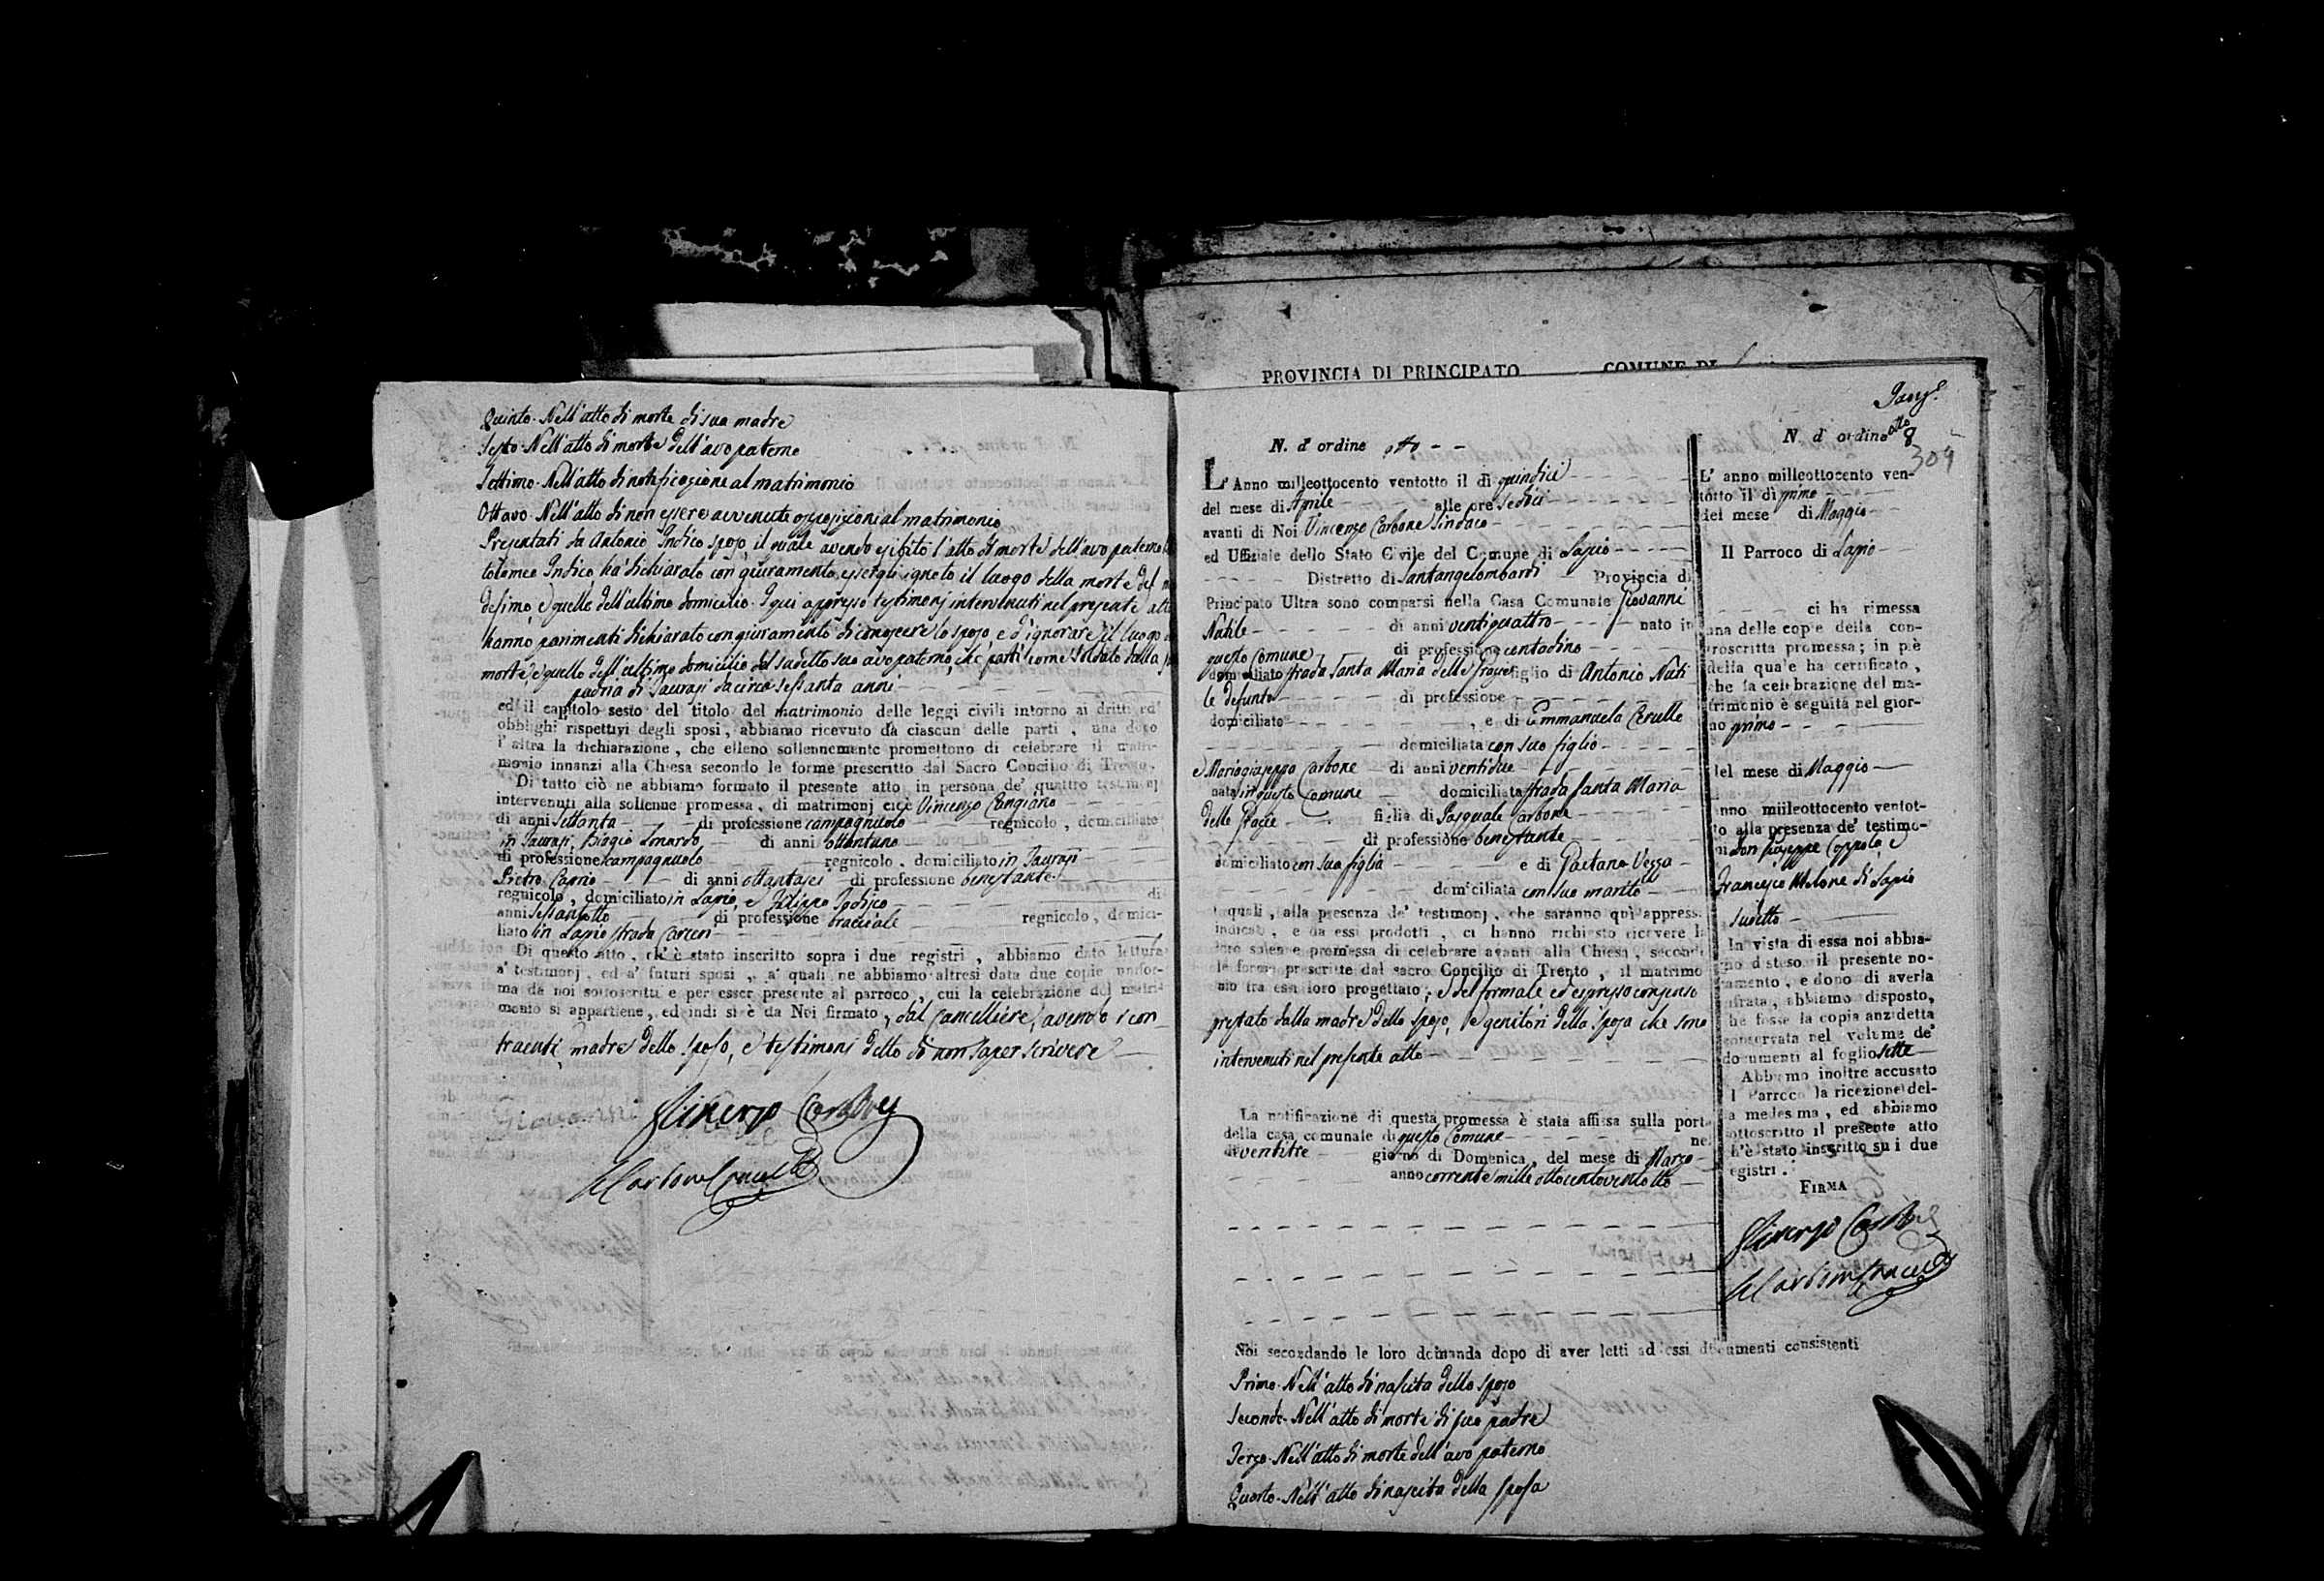 Quinto. Nell'atto di morte di sua madre
Sesto. Nell'atto di morte dell'avo paterno
Settimo. Nell'atto di notificazione al matrimonio
Ottavo. Nell'atto di non essere avvenute opposizioni al matrimonio
Presentati da Antonio Indico sposo, il quale avendo esibito l'atto di morte dell'avo paterno
tolomeo Indico, ha dichiarato con giuramento, essergli ignoto il luogo della morte del
desimo, e quello dell'ultimo domicilio. I qui appresso testimonj intervenuti nel presente atto
hanno parimenti dichiarato con giuramento di conoscere lo sposo, e d'ignorare il luogo
morte, e quello dell'ultimo domicilio del sudetto suo avo paterno, che partì come soldato dalla
padria di Taurasi da circa sessanta anni
ed il capitolo sesto del titolo del matrimonio delle leggi civili intorno ai dritti ed
obblighi rispettivi degli sposi, abbiamo ricevuto da ciascun delle parti, una dopo
l'altra la dichiarazione, che elleno sollennemente promettono di celebrare il matri-
monio innanzi alla Chiesa secondo le forme prescritto dal Sacro Concilio di Trento.
Di tutto ciò ne abbiamo formato il presente atto in persona de' quattro testimonj
intervenuti alla sollenne promessa, di matrimonj cioè Vincenzo Cangiano
di anni settanta di professione campagnuolo regnicolo, domiciliato
in Taurasi, Biagio Lonardo di anni ottantuno
di professione campagnuolo regnicolo, domiciliato in Taurasi
Pietro Caprio di anni ottantasei di professione benestante
regnicolo, domiciliato in Lapio, e Filippo Iodico di
anni sessantotto di professione bracciale regnicolo, domici-
liato in Lapio strada Carceri
Di questo atto, ch'è stato inscritto sopra i due registri, abbiamo dato lettura
a' testimonj, ed a' futuri sposi, a' quali ne abbiamo altresì data due copie unifor-
ma da noi sottoscritti e per esser presente al parroco, cui la celebrazione del matri-
monio si appartiene, ed indi si è da Noi firmato, dal Cancelliere, avendo i con-
traenti, madre dello sposo, e testimonj detto di non saper scrivere
Vincenzo Carbone
PROVINCIA DI PRINCIPATO COMUNE DI
N. d'ordine otto
L'Anno milleottocento ventotto il dì quindici
del mese di Aprile alle ore sedici
avanti di Noi Vincenzo Carbone Sindaco
ed Uffiziale dello Stato Civile del Comune di Lapio
Distretto di Santangelombardi Provincia di
Principato Ultra sono comparsi nella Casa Comunale Giovanni
Natile di anni ventiquattro nato in
questo Comune di professione contadino
domiciliato strada Santa Maria delle Grazie figlio di Antonio Nati
le defunto di professione
domiciliato , e di Emmanuela Cerullo
domiciliata con suo figlio
e Mariagiuseppa Carbone di anni ventidue
nata in questo Comune domiciliata strada Santa Maria
delle Grazie figlia di Pasquale Carbone
di professione benestante
domiciliato con sua figlia e di Gaetana Vezza
domiciliata con suo marito
i quali, alla presenza de' testimonj, che saranno quì appresso
indicati, e da essi prodotti, ci hanno richiesto ricevere la
loro solenne promessa di celebrare avanti alla Chiesa, secondo
le forme prescritte dal sacro Concilio di Trento, il matrimo
nio tra essi loro progettato, e del formale ed espresso consenso
prestato dalla madre dello sposo, e genitori della sposa che sono
intervenuti nel presente atto
La notificazione di questa promessa è stata affissa sulla porta
della casa comunale di questo Comune nel
dì ventitre giorno di Domenica, del mese di Marzo
anno corrente mille ottocentoventotto
Noi secondando le loro domanda dopo di aver letti ad essi documenti consistenti
Primo. Nell'atto di nascita dello sposo
Secondo. Nell'atto di morte di suo padre
Terzo. Nell'atto di morte dell'avo paterno
Quarto. Nell'atto di nascita della sposa
N. d'ordine otto
8
309
L'anno milleottocento ven-
totto il dì primo
del mese di Maggio
Il Parroco di Lapio
ci ha rimessa
una delle copie della con-
troscritta promessa; in piè
della quale ha certificato,
che la celebrazione del ma-
trimonio è seguita nel gior-
no primo
del mese di Maggio
anno milleottocento ventot-
to alla presenza de' testimo-
ni Don Giuseppe Coppola e
Francesco Melone di Lapio
sudetto
In vista di essa noi abbia-
mo disteso il presente no-
tamento, e dopo di averla
cifrata, abbiamo disposto,
che fosse la copia anzidetta
conservata nel volume de'
documenti al foglio sette
Abbiamo inoltre accusato
al Parroco la ricezione del-
la medesima, ed abbiamo
sottoscritto il presente atto
ch'è stato inscritto su i due
registri.
FIRMA
Vincenzo Carbone